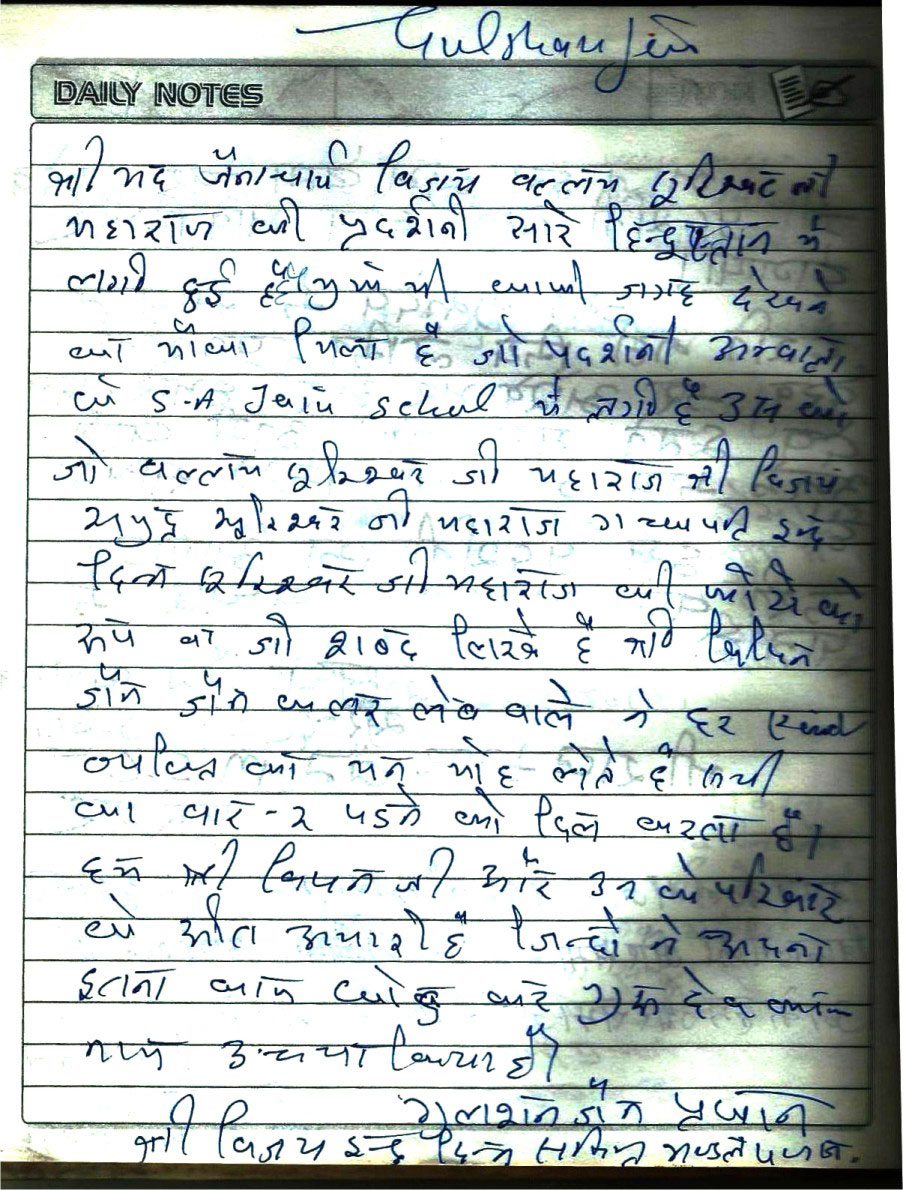 Gulshan Jain
DAILY NOTES
श्री मद जैनाचार्य विजय वल्लभ सुरिश्वर जी
महाराज की प्रदर्शनी सारे हिन्दुस्तान में
लगी हुई है मुझे भी काफी जगह देखने
का मौका मिला है जो प्रदर्शनी अम्बाला
के S.A Jain School में लगी है उस को
जो वल्लभ सुरिश्वर जी महाराज श्री विजय
समुद्र सुरिश्वर जी महाराज गच्छापति इन्द्र
दिन्न सुरिश्वर जी महाराज की फोटो को
रूप व जो शब्द लिखे हैं श्री विपिन
जैन जैन कलर लेब वाले ने हर
व्यक्ति का मन मोह लेते हैं
का बार-२ पडने को दिल करता है।
हम श्री विपन जी और उन के परिवार
के अति अभारी हैं जिन्हो ने अपना
इतना काम छोड़ कर गुरू देव का
नाम उच्चा किया है।
गुलशन जैन प्रधान
श्री विजय इन्द्र दिन्न मण्डल